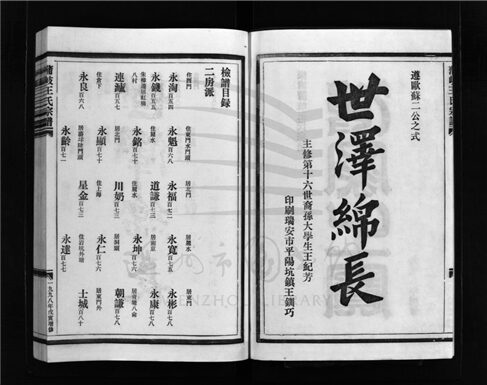 遵歐蘇二公之式
世澤綿長
主修第十六世裔孫大學生王紀芳
印刷瑞安市平陽坑鎮王釧巧
檢譜目錄
二房派
永淘百五四
永魁百六八
永福百七二
永寬百七五
永彬百七八
永錢百五五
永銘百七十
道謙百七三
永康百七八
連滬百五七
永顯百七十
川奶百七三
永坤百七六
朝謙百七八
永良百六八
永齡百七一
星金百七三
永仁百七六
永達百七七
土城百八十
蒲岐王氏宗譜
一九九八年戊寅增修